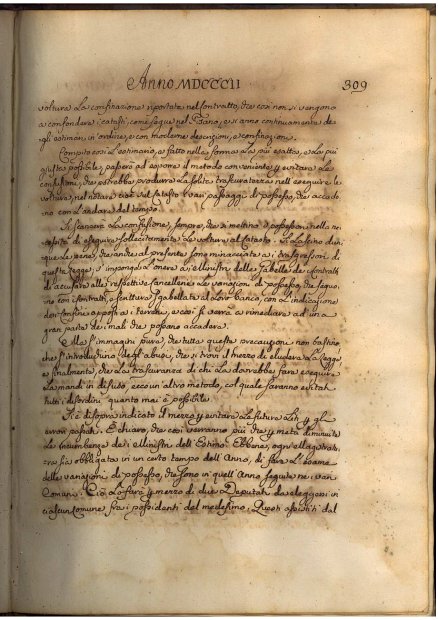 Anno MDCCCII 309
voltura la confinazione riportata nel contratto, che così non si vengono
a confondere i catasti, come segue nel Piano, e si anno continuamente de
gli estimari, in ordine, e con moderne descrizioni, e confinazioni.
Compito così l'estimario, e fatto nella forma la più esatta, e la più
giusta possibile, passerò ad esporre il metodo conveniente per evitare la
confusione, che potrebbe produrre la solita trascuratezza nell'eseguire le
volture, nel notare cioè nel Catasto i vari passaggi di possesso, che accado
no con l'andare del tempo.
A scansare la confusione, sempre, che si mettino i possessori nella ne
cessità di eseguire sollecitamente le volture al Catasto. Si lascino dun
que le pene, che anche al presente sono minacciate a i trasgressori di
questa legge; s'imponga l'onere a i Ministri delle Gabelle de Contratti
di accusare alle respettive Cancellerie le variazioni di possesso, che seguo
no con contratti, o scritture sgabellate al loro banco, con l'indicazione
de confini apposti a i terreni, e così si verrà a rimediare ad una
gran parte de i mali che possano accadere.
Ma s'immagini pure, che tutte queste precauzioni non bastino
che s'introduchino degli abusi, che si trovi il mezzo di eludere la legge
e finalmente, che la trascuranza di chi la dovrebbe fare eseguire
la mandi in disuso, ecco un altro metodo, col quale saranno evitati
tutti i disordini quanto mai è possibile.
Si è di sopra indicato il mezzo per evitare alla futura gli
errori passati. È chiaro, che così verranno più che per metà diminuite
le incumbenze de i Ministri dell'Estimo. Ebbene, ogni Magistrato
sia obbligato in un certo tempo dell'Anno, di fare l'esame
delle variazioni di possesso, che sono in quell'Anno seguite ne i vari
Comuni. Ciò lo farà per mezzo di due Deputati da eleggersi in
ciascun Comune fra i possidenti del medesimo. Questi assistiti dal